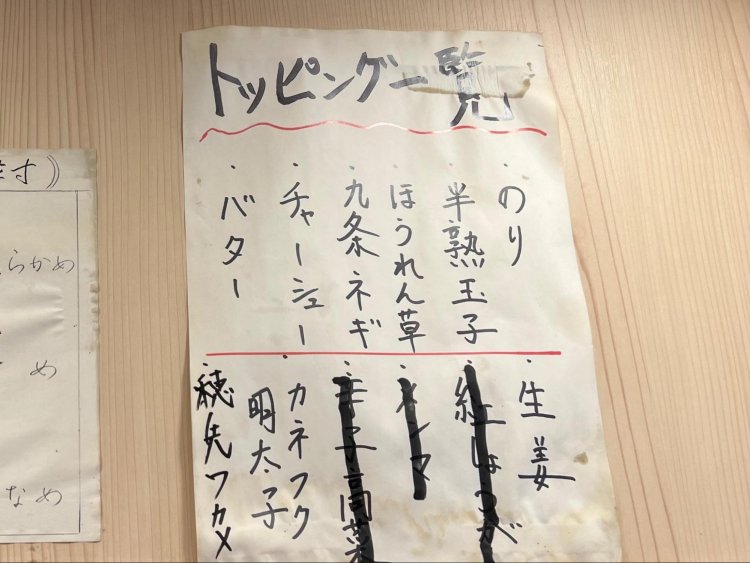 トッピング一覧
・のり
・半熟玉子
・ほうれん草
・九条ネギ
・チャーシュー
・バター
・生姜
・紅しょうが
・メンマ
・辛子高菜
・カネフク
明太子
・穂先ワカメ
寸))
らかめ
め
なめ